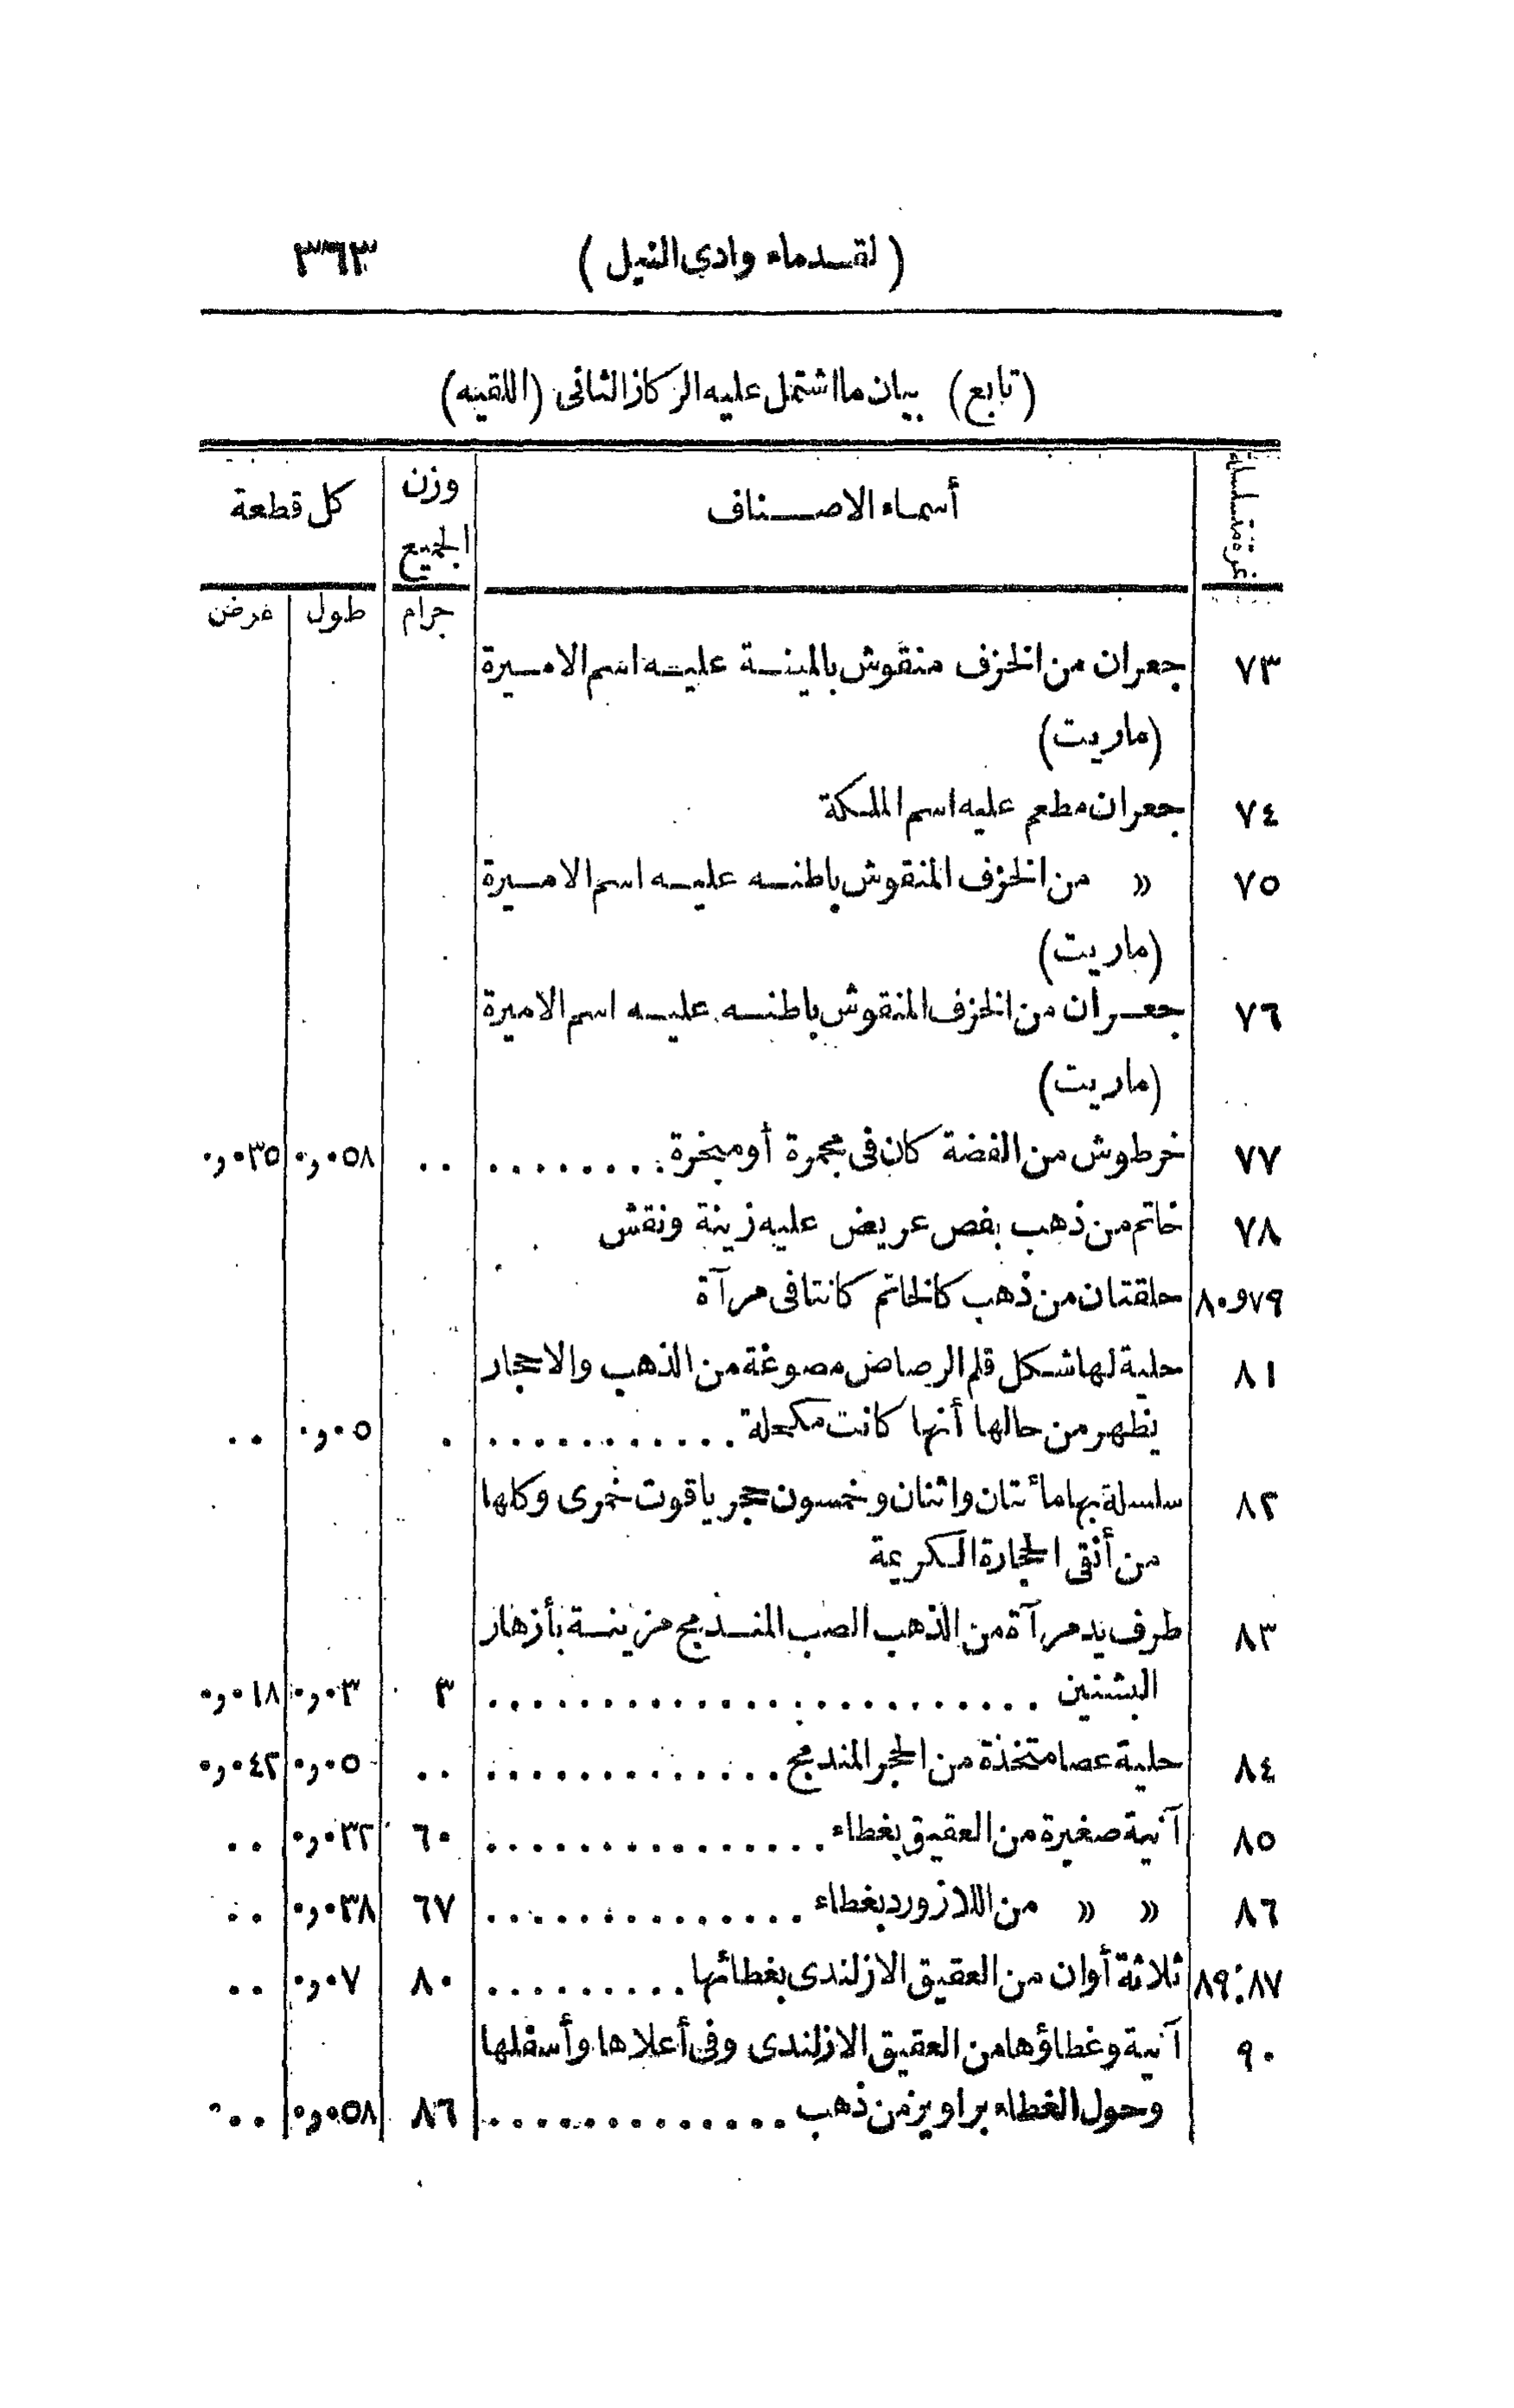 (لقدماء وادي النيل) ٣٦٣
(تابع) بيان ما اشتمل عليه الركاز الثانى (اللقيه)
نمرة متسلسلة أسماء الاصناف وزن الجميع كل قطعة
جرام طول عرض
٧٣ جعران من الخزف منقوش بالمينة عليه اسم الاميرة
(ماريت)
٧٤ جعران مطعم عليه اسم الملكة
٧٥ » من الخزف المنقوش باطنه عليه اسم الاميرة
(ماريت)
٧٦ جعران من الخزف المنقوش باطنه عليه اسم الاميرة
(ماريت)
٧٧ خرطوش من الفضة كان فى مجمرة أو مبخرة ........ .. ٠٫٠٥٨ ٠٫٠٣٥
٧٨ خاتم من ذهب بفص عريض عليه زينة ونقش
٧٩ و٨٠ حلقتان من ذهب كالخاتم كانتا فى مرآة
٨١ حلية لها شكل قلم الرصاص مصوغة من الذهب والاحجار
يظهر من حالها أنها كانت مكحلة ........... . ٠٫٠٥ ..
٨٢ سلسلة بها مائتان واثنان وخمسون حجر ياقوت خمرى وكلها
من أنقى الحجارة الكريمة
٨٣ طرف يد مرآة من الذهب الصب المندمج مزينة بأزهار
البشنين ........................ ٣ ٠٫٠٣ ٠٫٠١٨
٨٤ حلية عصا متخذة من الحجر المندمج ............. .. ٠٫٠٥ ٠٫٠٤٢
٨٥ آنية صغيرة من العقيق بغطاء ............... ٦٠ ٠٫٠٣٢ ..
٨٦ » » من اللازورد بغطاء .............. ٦٧ ٠٫٠٣٨ ..
٨٧:٨٩ ثلاثة أوان من العقيق الازلندى بغطائها ......... ٨٠ ٠٫٠٧ ..
٩٠ آنية وغطاؤها من العقيق الازلندى وفى أعلاها وأسفلها
وحول الغطاء براويز من ذهب ............. ٨٦ ٠٫٠٥٨ ..